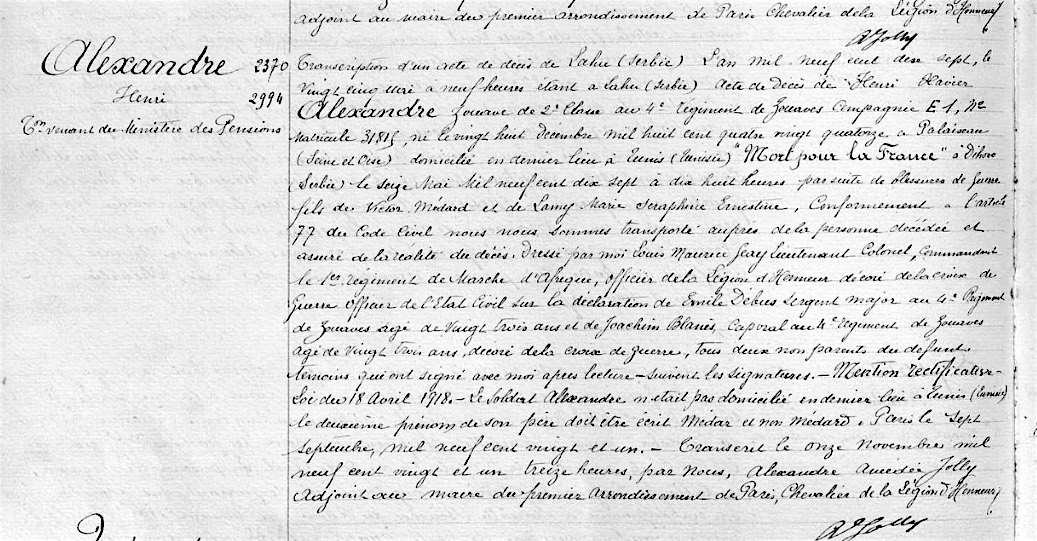 adjoint au maire du premier arrondissement de Paris Chevalier de la Légion d'Honneur
A Jolly
Alexandre 2370
Henri 2994
Ton venant du Ministère des Pensions
Transcription d'un acte de décès de Sahu (Serbie) L'an mil neuf cent dix sept, le
vingt cinq mai à neuf heures étant à Sahu (Serbie) Acte de Décès de Henri Xavier
Alexandre Zouave de 2e Classe au 4e régiment de Zouaves Compagnie E 1, No
matricule 31815, né le vingt huit Décembre mil huit cent quatre vingt quatorze à Palaiseau
(Seine et Oise) domicilié en dernier lieu à Tunis (Tunisie) "Mort pour la France" à Dihovo
(Serbie) le seize Mai Mil neuf cent dix sept à dix huit heures par suite de blessures de guerre
fils de Victor Médard et de Lamy Marie Seraphine Ernestine, Conformement à l'article
77 du Code Civil nous nous sommes transporté auprès de la personne décédée et
assuré de la réalité du décès. Dressé par moi Louis Maurice Geay Lieutenant Colonel, Commandant
le 1er régiment de Marche d'Afrique, officier de la Légion d'Honneur décoré de la croix de
Guerre Officier de l'Etat Civil sur la déclaration de Emile Debus Sergent major au 4e Régiment
de Zouaves agé de Vingt trois ans et de Joachim Blanès Caporal au 4e régiment de Zouaves
agé de Vingt trois ans, décoré de la croix de guerre, tous deux non parents du defunt
témoins qui ont signé avec moi apres lecture - suivent les signatures. - Mention rectificative -
Loi du 18 Avril 1918. - Le Soldat Alexandre n'était pas domicilié en dernier lieu à Tunis (Tunisie)
le deuxième prénom de son père doit être écrit Médar et non Médard. Paris le sept
Septembre, mil neuf cent vingt et un. - Transcrit le onze Novembre mil
neuf cent vingt et un treize heures, par Nous, Alexandre Amedée Jolly
Adjoint au maire du premier arrondissement de Paris, Chevalier de la Légion d'Honneur
A Jolly